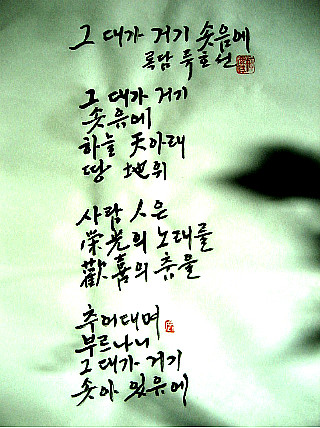 그대가 거기 솟음에
그대가 거기
솟음에
하늘 天아래
땅 地위
사람 人은
榮光의 노래를
歡喜의 춤을
추어대며
부르나니
그대가 거기
솟아 있음에